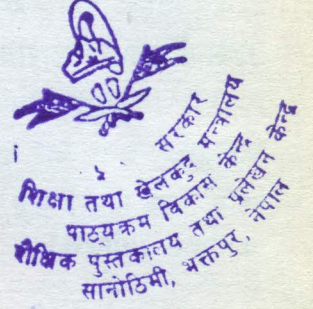 सरकार
शिक्षा तथा खेलकुद मन्त्रालय
पाठ्यक्रम विकास केन्द्र
शैक्षिक पुस्तकालय तथा प्रलेखन केन्द्र
सानोठिमी, भक्तपुर, नेपाल